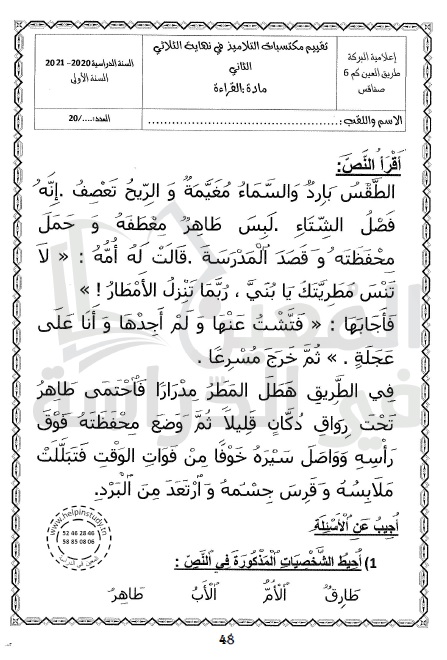 إعلامية البركة
طريق العين كم 6
صفاقس
تقييم مكتسبات التلاميذ في نهاية الثلاثي
الثاني
مادة :القراءة
السنة الدراسية 2020- 2021
السنة الأولى
الاسم واللقب :
العدد:..../20
أَقْرَأُ النَّصَّ:
الطَّقْسُ بَارِدٌ وَالسَّمَاءُ مُغَيَّمَةٌ وَ الرِّيحُ تَعْصِفُ .إِنَّهُ
فَصْلُ الشِّتَاءِ .لَبِسَ طَاهِرُ مِعْطَفَهُ وَ حَمَلَ
مِحْفَظَتَه ُو قَصَدَ ٱلْمَدْرَسَةَ .قَالَتْ لَهُ أُمُّهُ : « لاَ
تَنْسَ مَطَرِيَّتَكَ يَا بُنَيَّ ، رُبَّمَا تَنْزِلُ الأَمْطَارُ ! »
فَأَجَابَهَا : « فَتَّشْتُ عَنْهَا وَ لَمْ أَجِدْهَا وَ أَنَا عَلَى
عَجَلَةٍ . » ثُمَّ خَرَجَ مُسْرِعًا .
فِي الطَّرِيقِ هَطَلَ المَطَرُ مِدْرَارًا فَٱحْتَمَى طَاهِرُ
تَحْتَ رِوَاقِ دُكَّانٍ قَلِيلاً ثُمَّ وَضَعَ مِحْفَظَتَهُ فَوْقَ
رَأْسِهِ وَوَاصَلَ سَيْرَهُ خَوْفًا مِنْ فَوَاتِ الوَقْتِ فَتَبَلَّلَتْ
مَلَابِسُهُ وَ قَرِسَ جِسْمُهُ وَ ٱرْتَعَدَ مِنَ ٱلْبَرْدِ.
أُجِيبُ عَنِ ٱلْأَسْئِلَةِ
1) أُحِيطُ الشَّخْصِيَّاتِ ٱلْمَذْكُورَةَ فِي النَّصِّ :
طَارِقُ ٱلْأُمُّ ٱلْأَبُ طَاهِرُ
www.helpinstudy.tn
52 46 28 46
58 85 08 06
48